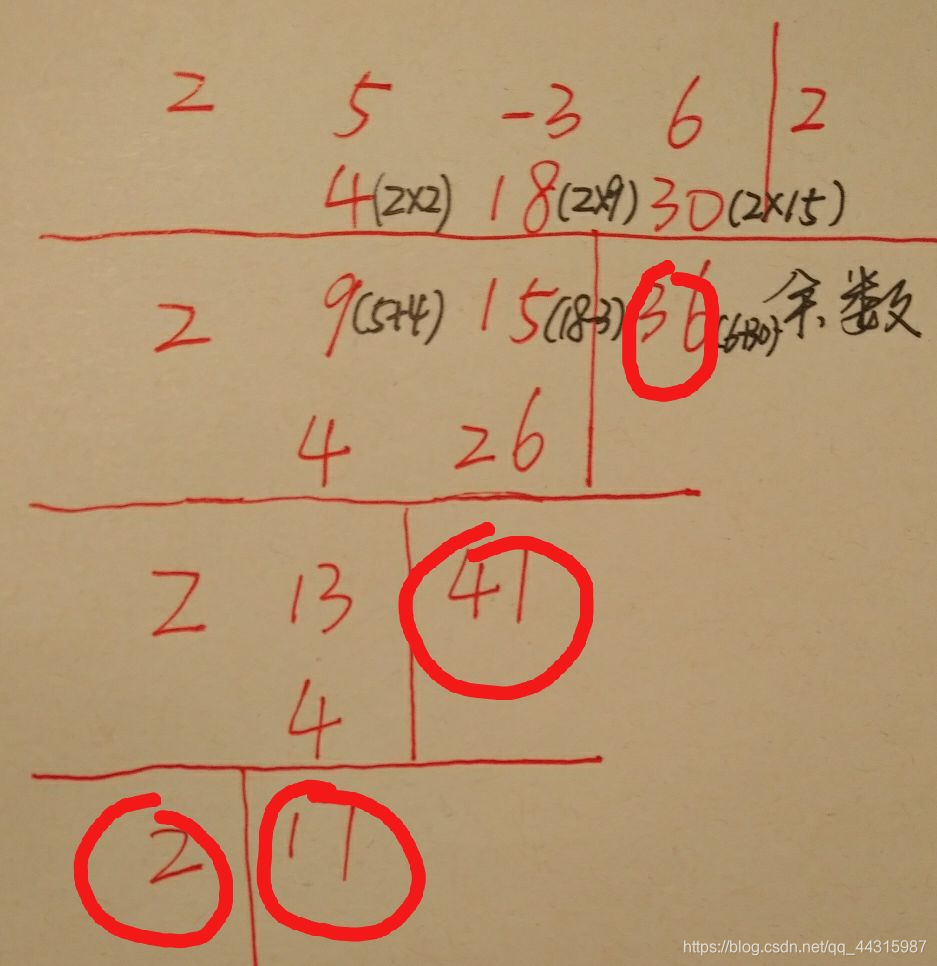 2 5 -3 6 2
4(2×2) 18(2×9) 30(2×15)
2 9(5+4) 15(18-3) 36(6+30) 余数
4 26
2 13 41
4
2 17
https://blog.csdn.net/qq_44315987